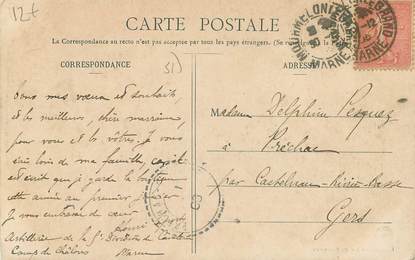 12+
CARTE POSTALE
La Correspondance au recto n'est pas acceptée par tous les pays étrangers. (Se renseigner
CORRESPONDANCE
51
ADRESSE
MOURMELON LE GRAND
MARNE
Tous mes vœux et souhaits
et les meilleurs, chère marraine,
pour vous et les vôtres. Je vous
suis loin de ma famille,
est écrit que je garde la boutique
cette année au premier
Je vous embrasse de cœur
Henri
Artillerie de la Division de Cavalerie
Camp de Châlons Marne
Madame Delphine
à Préchac
par Castelnau-Rivière-Basse
Gers